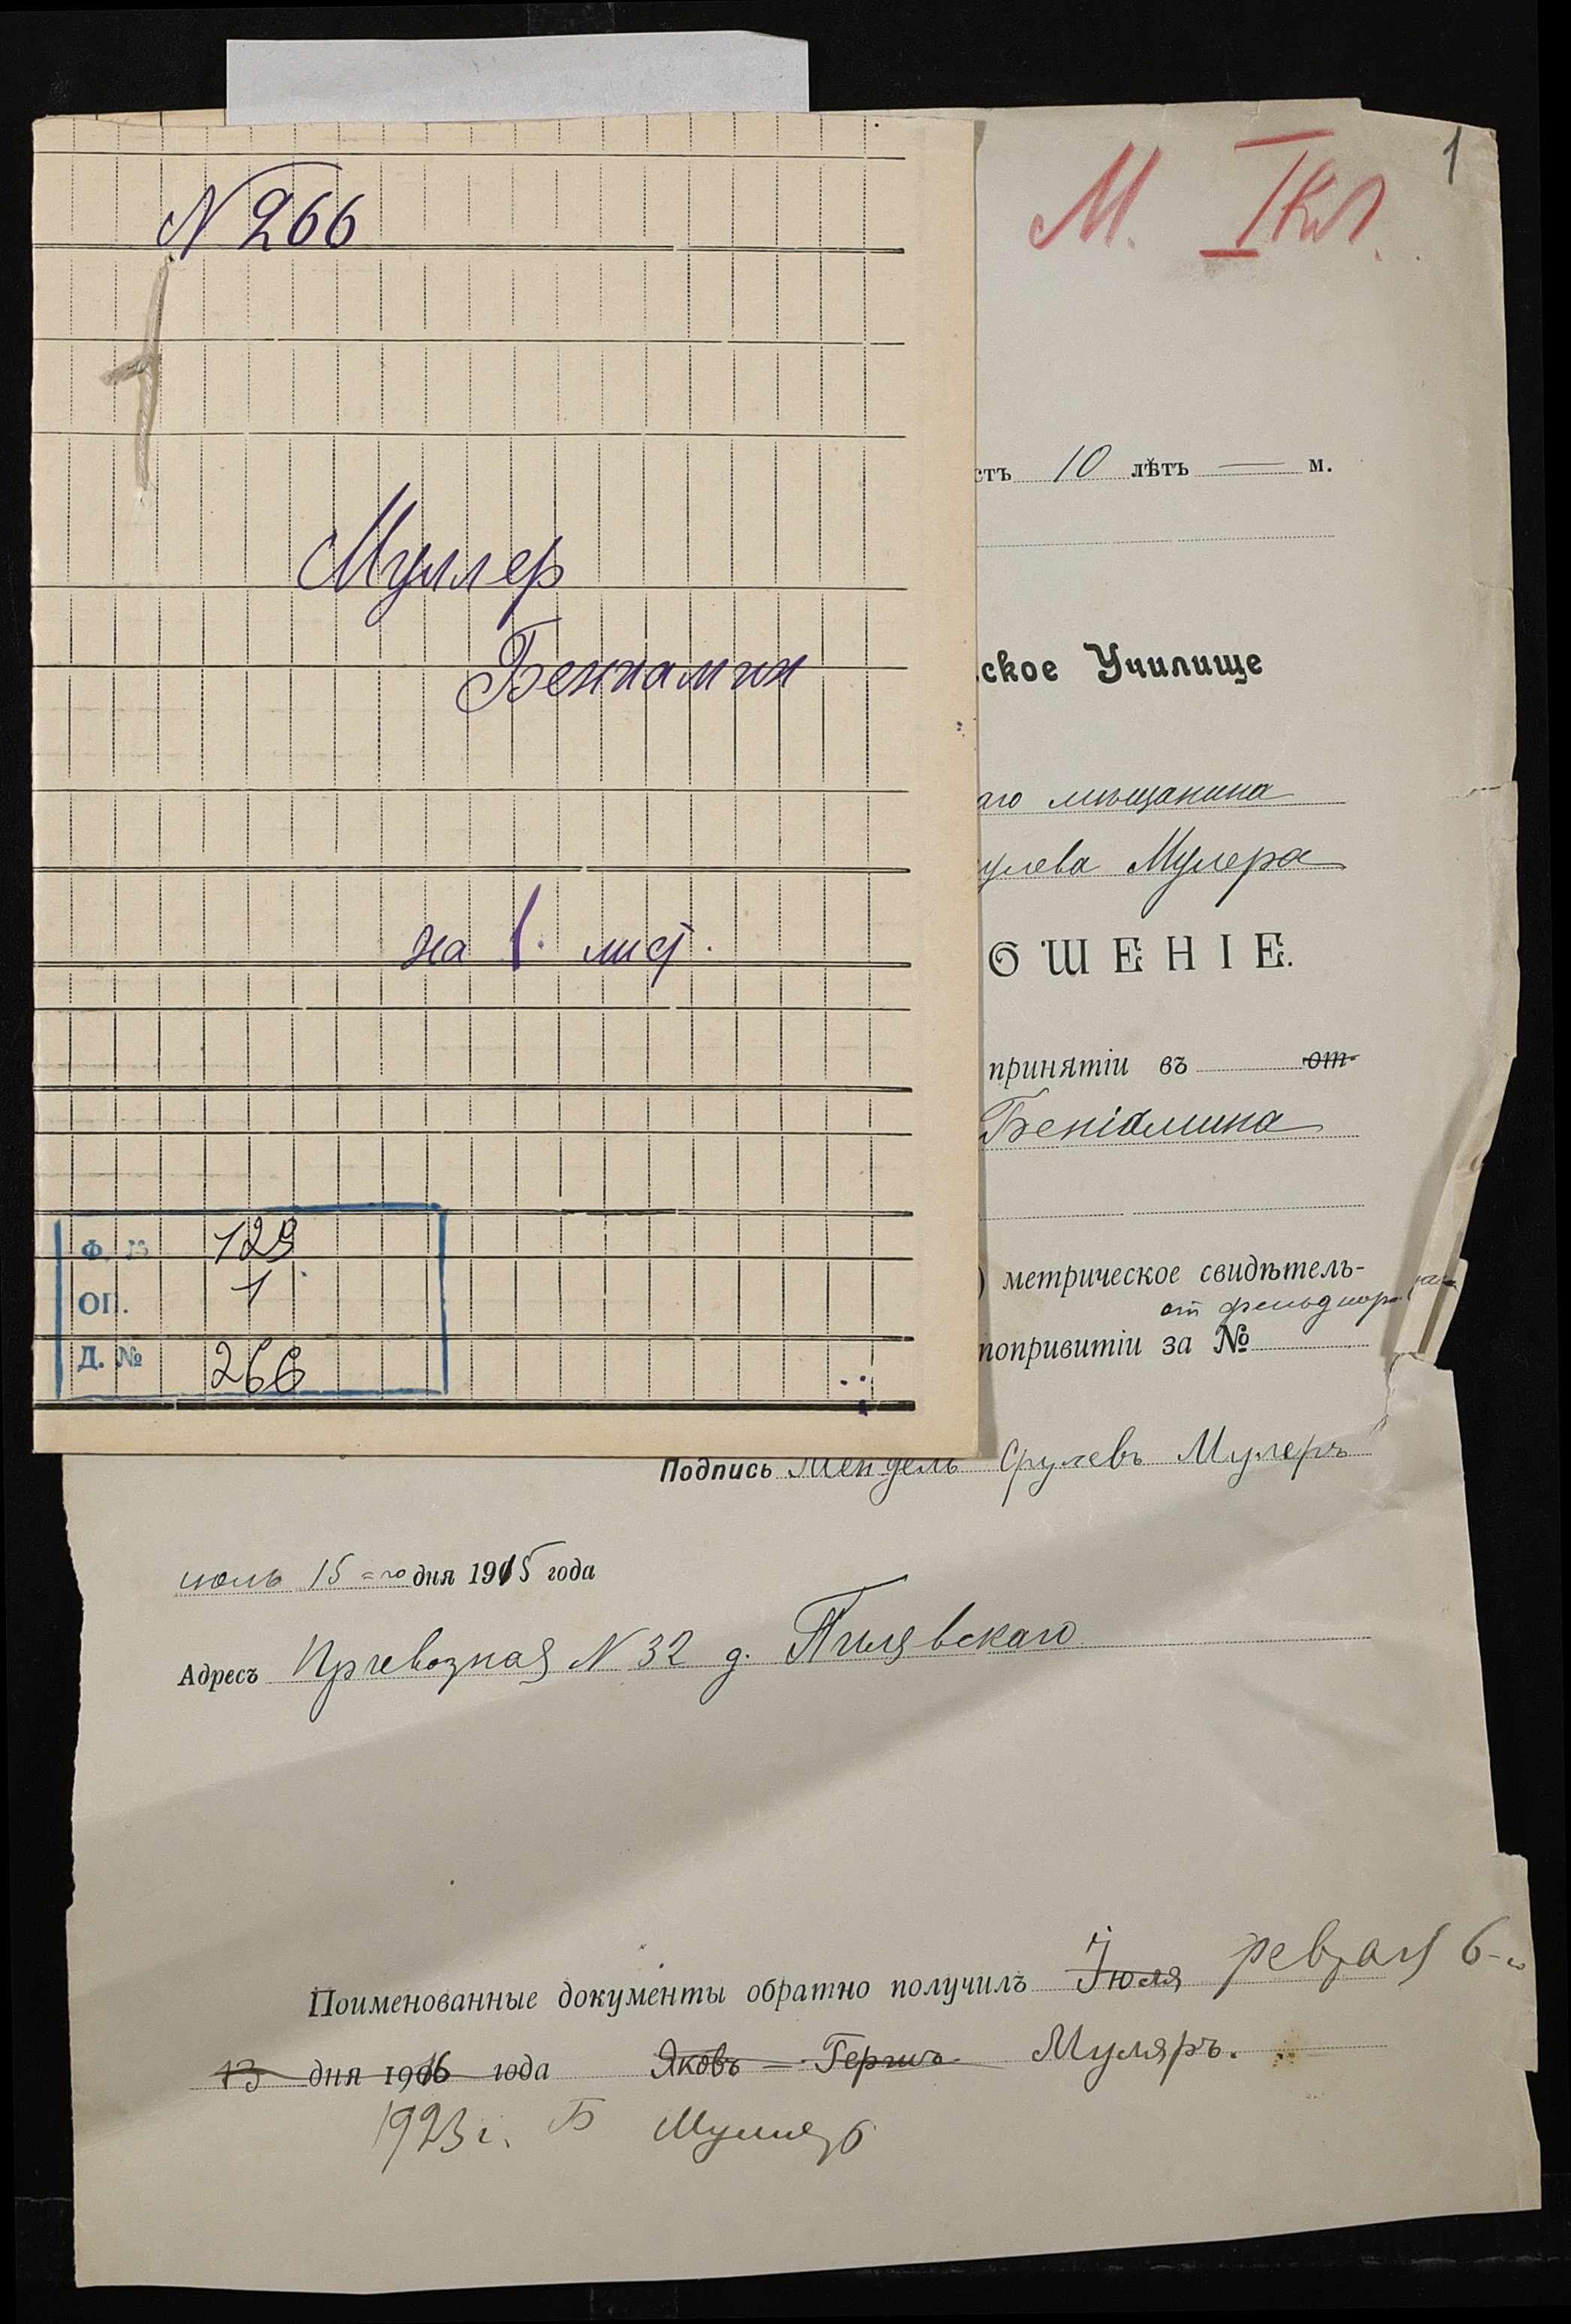 N 266
Муллер
Бениамин
на 1. лист.
Ф. № 129
ОП. 1
Д. № 266
1
М. I кл.
стъ 10 лѣтъ — м.
ское Училище
аго мѣщанина
улева Мулера
ОШЕНІЕ.
принятіи въ от-
Беніамина
) метрическое свидѣтель-
от
попривитіи за №
Подпись Мендель Срулевъ Мулеръ
июль 15=го дня 1915 года
Адресъ N 32 д. Пилявскаго
Поименованные документы обратно получилъ Іюля феврал 6-го
13 дня 1916 года Яковъ - Гершъ Муляръ.
1923 г. Б